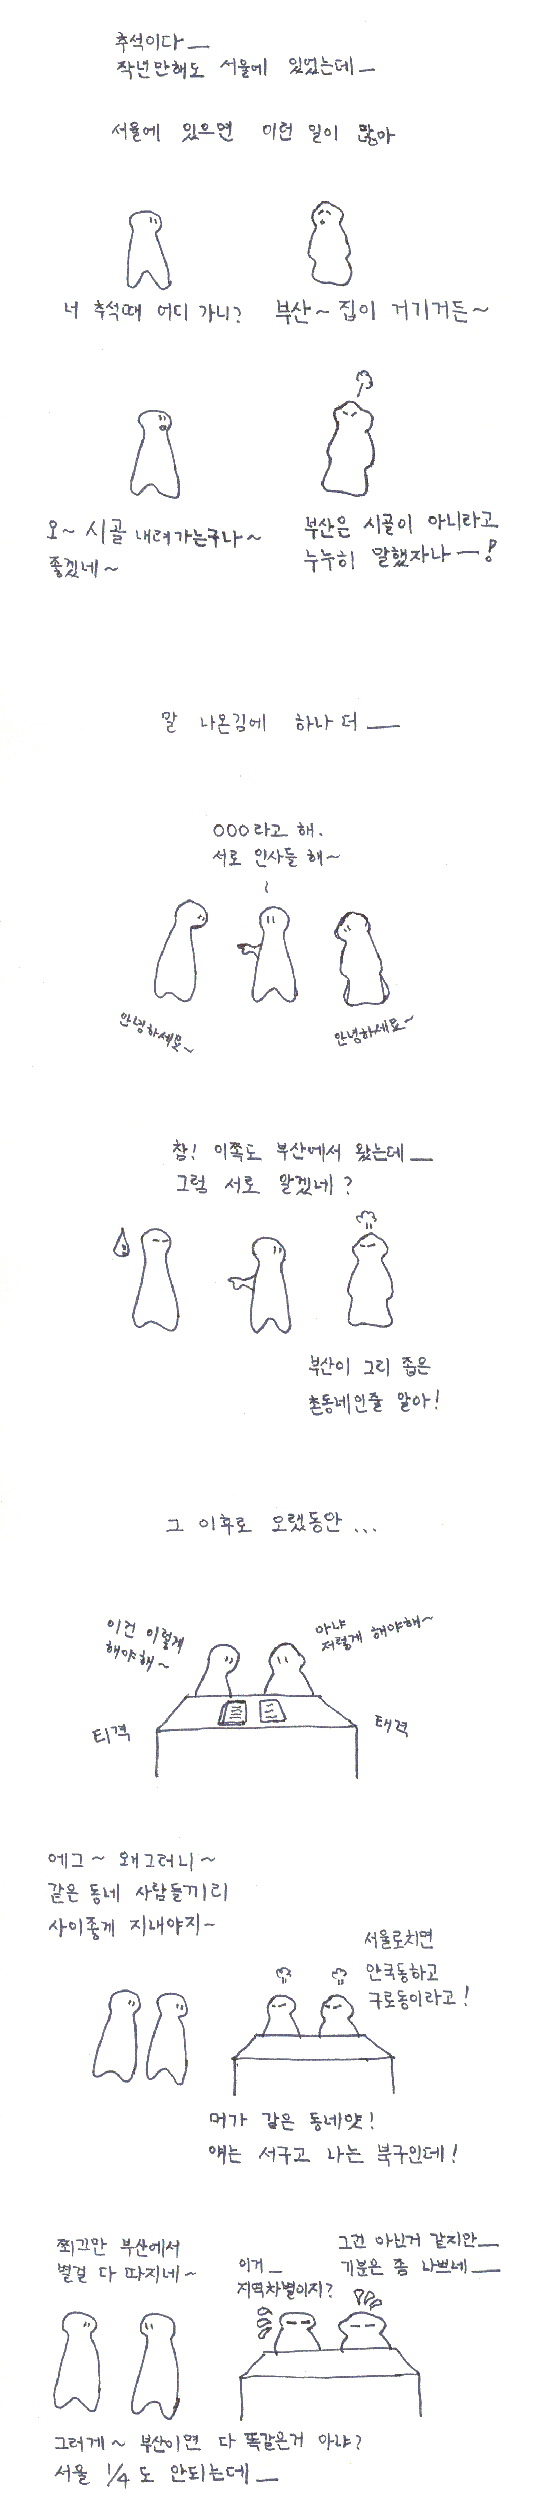 추석이다__
작년만해도 서울에 있었는데_
서울에 있으면 이런 일이 많아
너 추석때 어디 가니?
부산~ 집이 거기거든~
오~ 시골 내려가는구나~
좋겠네~
부산은 시골이 아니라고
누누히 말했자나—!
말 나온김에 하나 더 __
OOO라고 해.
서로 인사들 해~
안녕하세요~
안녕하세요~
참! 이쪽도 부산에서 왔는데__
그럼 서로 알겠네?
부산이 그리 좁은
촌동네인줄 알아!
그 이후로 오랫동안...
이건 이렇게
해야해~
아냐
저렇게 해야해~
티격
태격
에그~ 왜그러니~
같은 동네 사람들끼리
사이좋게 지내야지~
서울로치면
안국동하고
구로동이라고!
머가 같은 동네얏!
얘는 서구고 나는 북구인데!
쬐끄만 부산에서
별걸 다 따지네~
이거_
지역차별이지?
그건 아닌거 같지만__
기분은 좀 나쁘네__
그러게~ 부산이면 다 똑같은거 아냐?
서울 1/4도 안되는데__